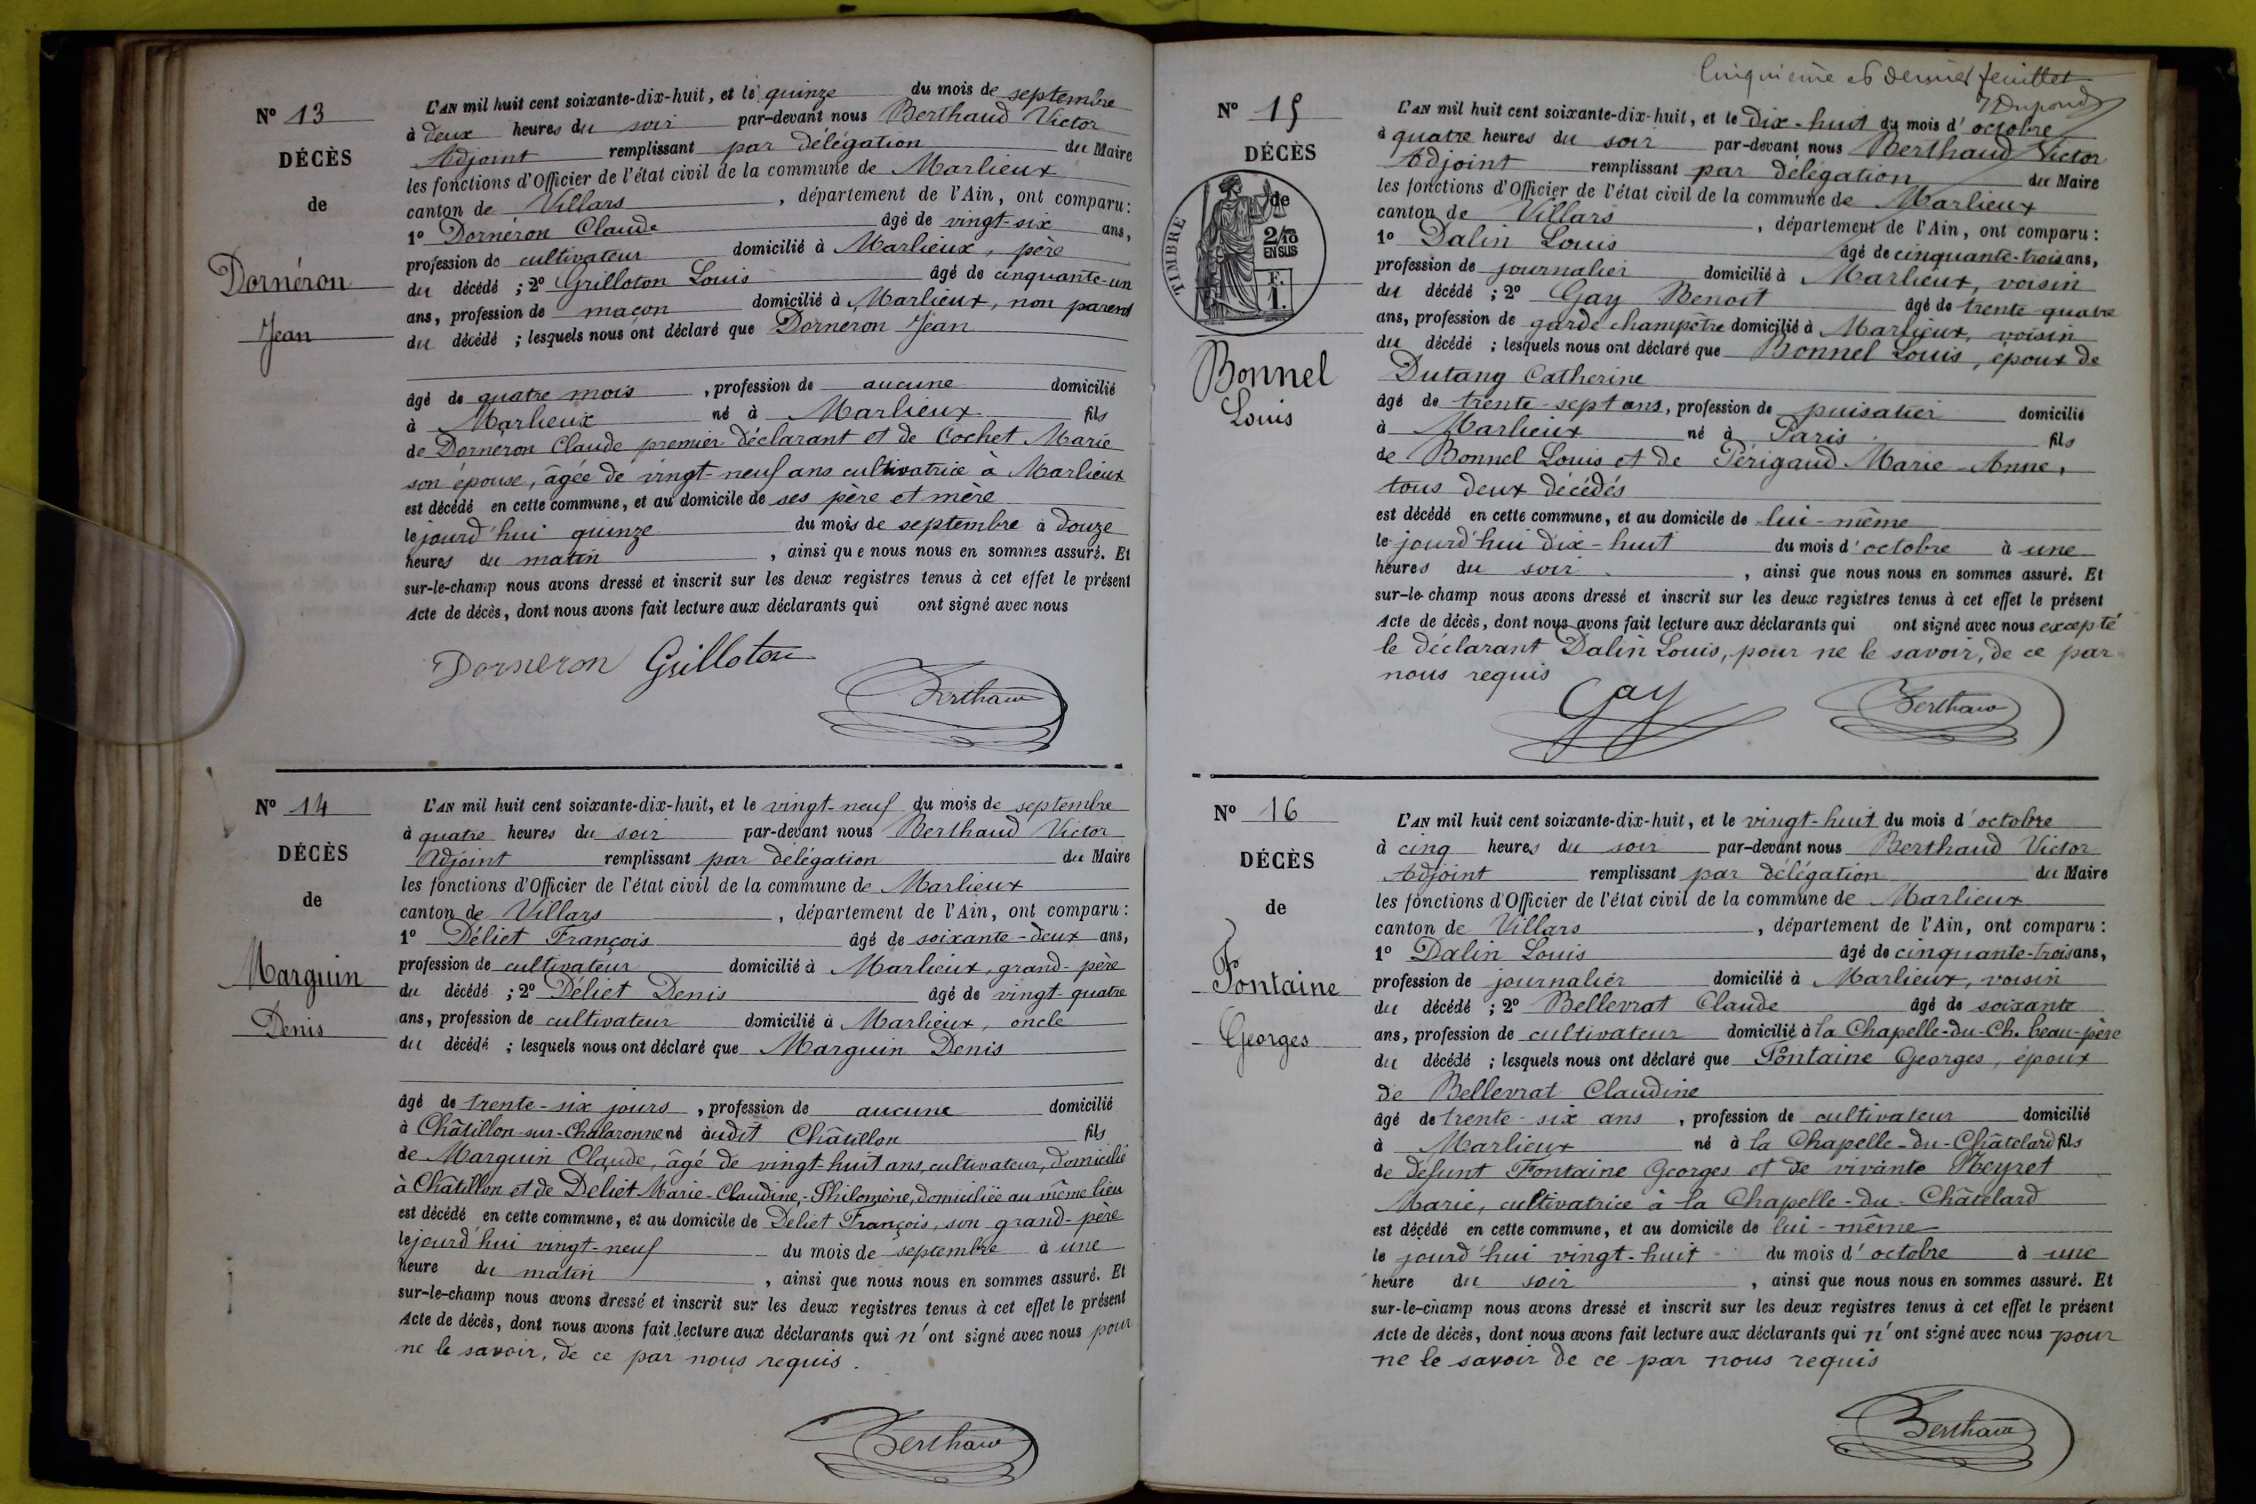 N° 13
DÉCÈS
de
Dornéron
Jean
L'AN mil huit cent soixante-dix-huit, et le quinze du mois de septembre
à deux heures du soir par-devant nous Berthaud Victor
Adjoint remplissant par délégation du Maire
les fonctions d'Officier de l'état civil de la commune de Marlieux
canton de Villars, département de l'Ain, ont comparu :
1° Dornéron Claude âgé de vingt-six ans,
profession de cultivateur domicilié à Marlieux, père
du décédé ; 2° Grilloton Louis âgé de cinquante-un
ans, profession de maçon domicilié à Marlieux, non parent
du décédé ; lesquels nous ont déclaré que Dorneron Jean
âgé de quatre mois, profession de aucune domicilié
à Marlieux né à Marlieux fils
de Dornéron Claude premier déclarant et de Cochet Marie
son épouse, âgée de vingt-neuf ans cultivatrice à Marlieux
est décédé en cette commune, et au domicile de ses père et mère
le jourd'hui quinze du mois de septembre à douze
heures du matin, ainsi que nous nous en sommes assuré. Et
sur-le-champ nous avons dressé et inscrit sur les deux registres tenus à cet effet le présent
Acte de décès, dont nous avons fait lecture aux déclarants qui ont signé avec nous
Dorneron Grilloton
Berthaud
N° 14
DÉCÈS
de
Marguin
Denis
L'AN mil huit cent soixante-dix-huit, et le vingt-neuf du mois de septembre
à quatre heures du soir par-devant nous Berthaud Victor
Adjoint remplissant par délégation du Maire
les fonctions d'Officier de l'état civil de la commune de Marlieux
canton de Villars, département de l'Ain, ont comparu :
1° Déliet François âgé de soixante-deux ans,
profession de cultivateur domicilié à Marlieux, grand-père
du décédé ; 2° Déliet Denis âgé de vingt-quatre
ans, profession de cultivateur domicilié à Marlieux, oncle
du décédé ; lesquels nous ont déclaré que Marguin Denis
âgé de trente-six jours, profession de aucune domicilié
à Châtillon-sur-Chalaronne né audit Châtillon fils
de Marguin Claude, âgé de vingt-huit ans, cultivateur, domicilié
à Châtillon et de Deliet Marie-Claudine-Philomène, domiciliée au même lieu
est décédé en cette commune, et au domicile de Déliet François, son grand-père
le jourd'hui vingt-neuf du mois de septembre à une
heure du matin, ainsi que nous nous en sommes assuré. Et
sur-le-champ nous avons dressé et inscrit sur les deux registres tenus à cet effet le présent
Acte de décès, dont nous avons fait lecture aux déclarants qui n'ont signé avec nous pour
ne le savoir, de ce par nous requis.
Berthaud
Cinquième et dernier feuillet
Dupond
N° 15
DÉCÈS
de
TIMBRE
2/10
EN SUS
F.
1.
Bonnel
Louis
L'AN mil huit cent soixante-dix-huit, et le dix-huit du mois d'octobre
à quatre heures du soir par-devant nous Berthaud Victor
Adjoint remplissant par délégation du Maire
les fonctions d'Officier de l'état civil de la commune de Marlieux
canton de Villars, département de l'Ain, ont comparu :
1° Dalin Louis âgé de cinquante-trois ans,
profession de journalier domicilié à Marlieux, voisin
du décédé ; 2° Gay Benoit âgé de trente quatre
ans, profession de garde champêtre domicilié à Marlieux, voisin
du décédé ; lesquels nous ont déclaré que Bonnel Louis, époux de
Dutang Catherine
âgé de trente-sept ans, profession de puisatier domicilié
à Marlieux né à Paris fils
de Bonnel Louis et de Périgaud Marie-Anne,
tous deux décédés
est décédé en cette commune, et au domicile de lui-même
le jourd'hui dix-huit du mois d'octobre à une
heures du soir, ainsi que nous nous en sommes assuré. Et
sur-le-champ nous avons dressé et inscrit sur les deux registres tenus à cet effet le présent
Acte de décès, dont nous avons fait lecture aux déclarants qui ont signé avec nous excepté
le déclarant Dalin Louis, pour ne le savoir, de ce par
nous requis
Gay
Berthaud
N° 16
DÉCÈS
de
Fontaine
Georges
L'AN mil huit cent soixante-dix-huit, et le vingt-huit du mois d'octobre
à cinq heures du soir par-devant nous Berthaud Victor
Adjoint remplissant par délégation du Maire
les fonctions d'Officier de l'état civil de la commune de Marlieux
canton de Villars, département de l'Ain, ont comparu :
1° Dalin Louis âgé de cinquante-trois ans,
profession de journalier domicilié à Marlieux, voisin
du décédé ; 2° Bellevrat Claude âgé de soixante
ans, profession de cultivateur domicilié à la Chapelle-du-Ch. beau-père
du décédé ; lesquels nous ont déclaré que Fontaine Georges, époux
de Bellevrat Claudine
âgé de trente-six ans, profession de cultivateur domicilié
à Marlieux né à la Chapelle-du-Châtelard fils
de défunt Fontaine Georges et de vivante Meyret
Marie, cultivatrice à la Chapelle-du-Châtelard
est décédé en cette commune, et au domicile de lui-même
le jourd'hui vingt-huit du mois d'octobre à une
heure du soir, ainsi que nous nous en sommes assuré. Et
sur-le-champ nous avons dressé et inscrit sur les deux registres tenus à cet effet le présent
Acte de décès, dont nous avons fait lecture aux déclarants qui n'ont signé avec nous pour
ne le savoir de ce par nous requis
Berthaud